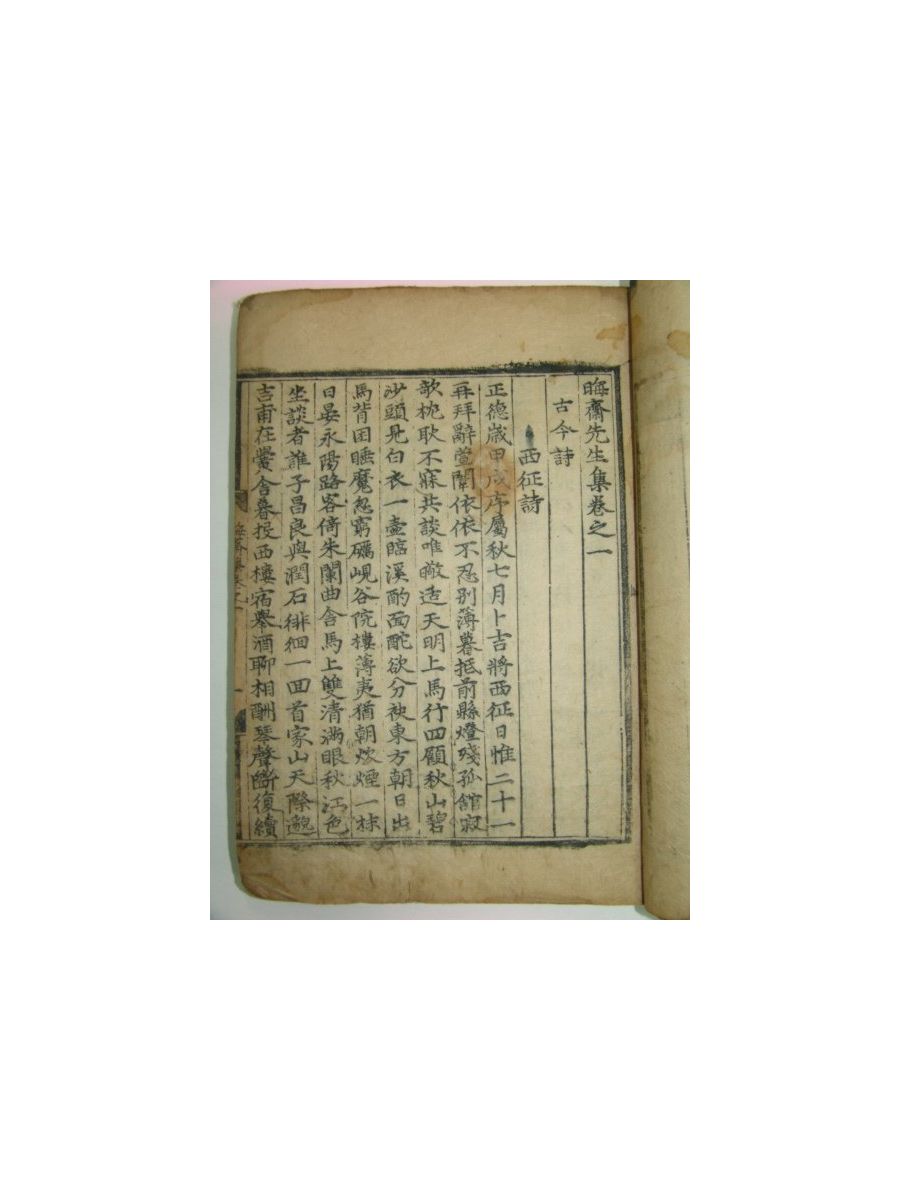 晦齋先生集卷之一
古今詩
西征詩
正德歲甲戌序屬秋七月卜吉將西征日惟二十一
再拜辭萱闈依依不忍別薄暮抵前縣燈殘孤舘寂
欹枕耿不寐共談唯暾造天明上馬行四顧秋山碧
沙頭見白衣一壷臨溪酌面酡欲分袂東方朝日出
馬背困睡魔忽窮礪峴谷院樓薄夷猶朝炊煙一抹
日晏永陽路客倚朱闌曲舍馬上雙清滿眼秋江色
坐談者誰子昌良與潤石徘徊一回首家山天際邈
吉甫在黌舍暮投西樓宿擧酒聊相酬琴聲斷復續